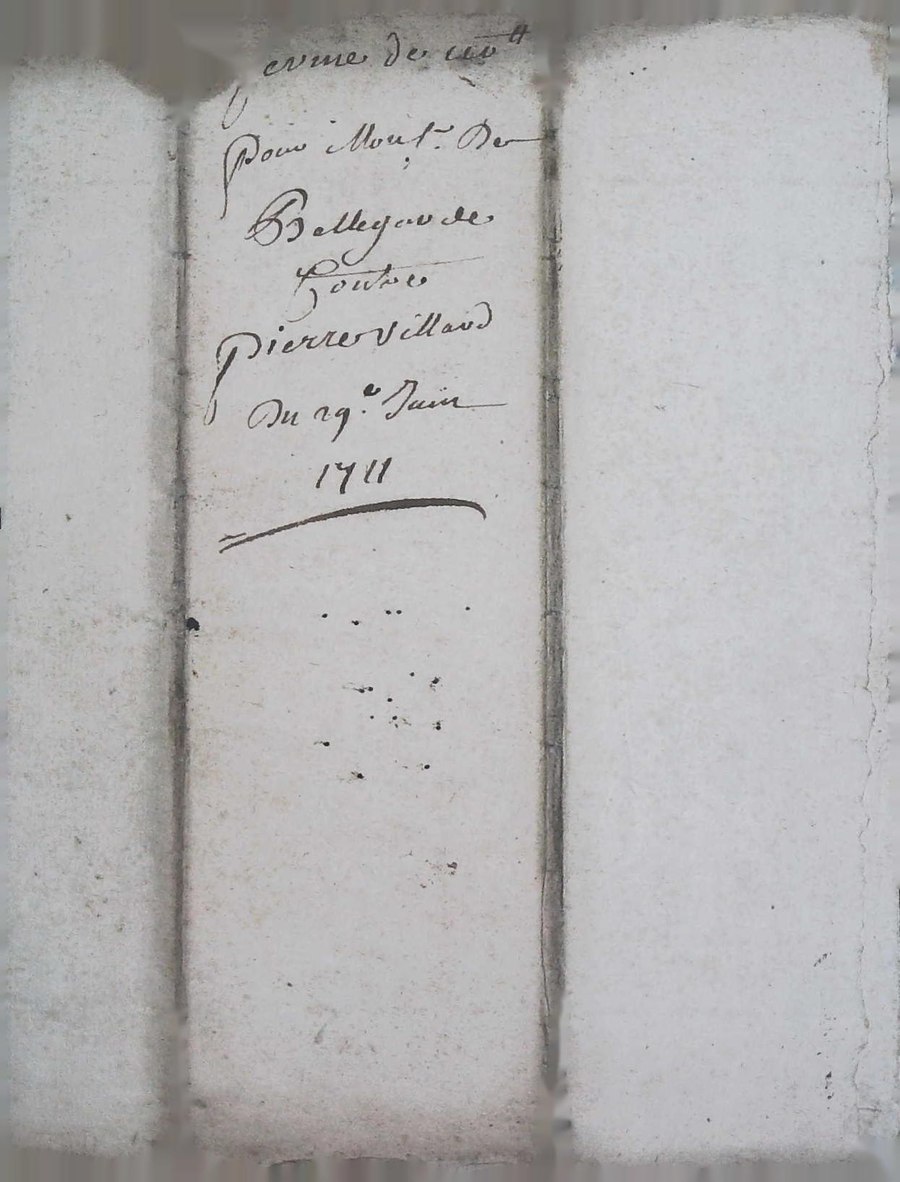 ferme de
pour Mons.r De
Bellegarde
Contre
pierre Villard
Du 29.e Juin
1711